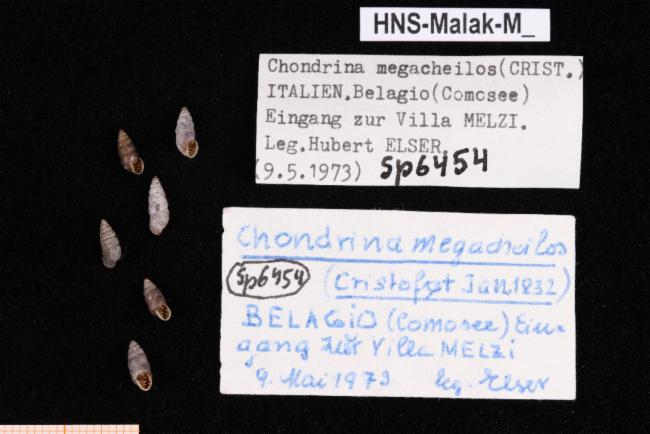 HNS-Malak-M_
Chondrina megacheilos(CRIST.)
ITALIEN.Belagio(Comosee)
Eingang zur Villa MELZI.
Leg.Hubert ELSER.
(9.5.1973) Sp6454
Chondrina megacheilos
Sp6454 (Cristof et Jan, 1832)
BELAGIO (Comosee) Ein-
gang zur Villa MELZI
9. Mai 1973 leg. Elser